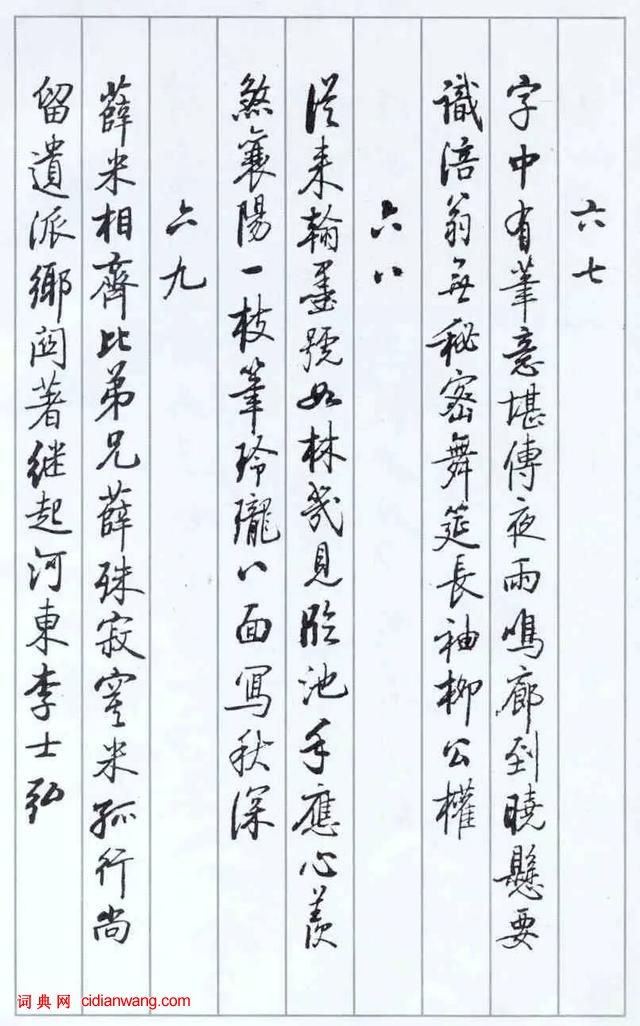 六七
字中有筆意堪傳夜雨鳴廊到曉懸要
識涪翁無秘密舞筵長袖柳公權
六八
從来翰墨號如林幾見臨池手應心羨
煞襄陽一枝筆玲瓏八面寫秋深
六九
薛米相齊比弟兄薛殊寂寞米孤行尚
留遺派鄉關著继起河東李士弘
词典网 cidianwang.com